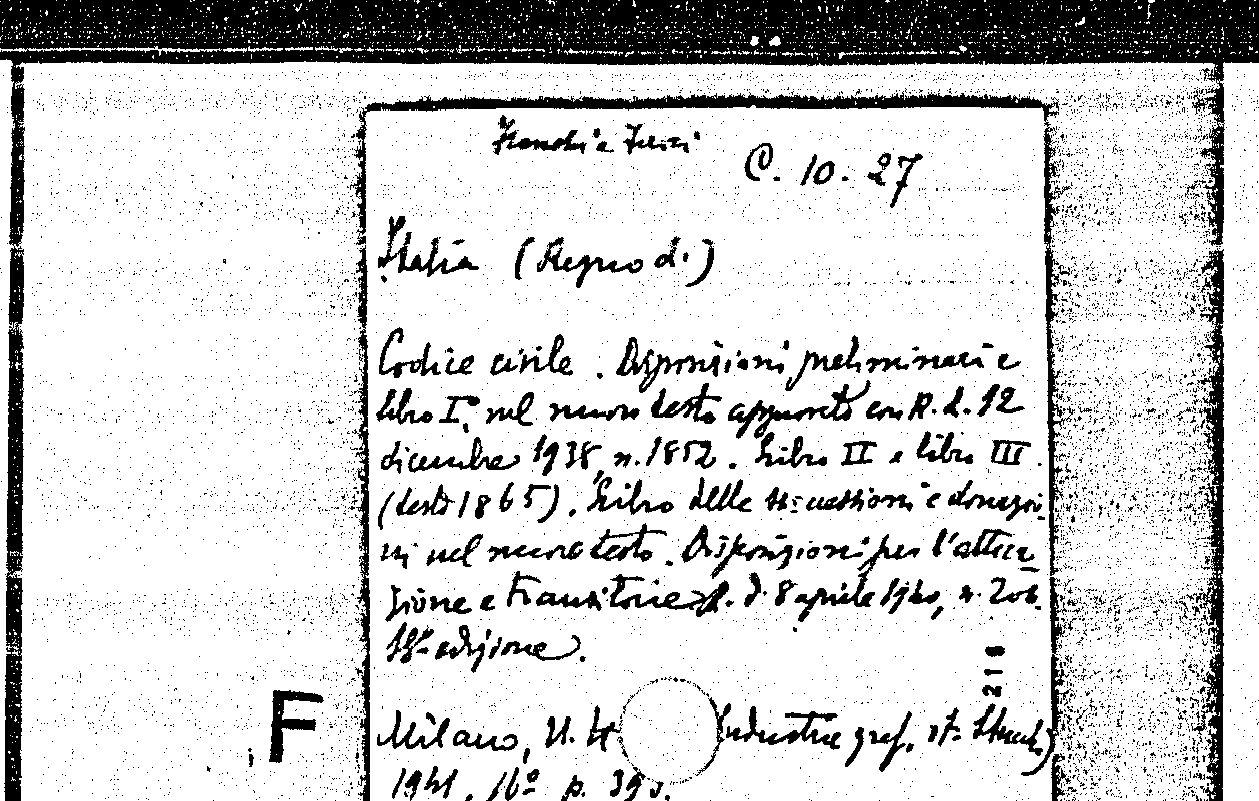 Franchi e Feroci
C. 10. 27
Italia (Regno di)
Codice civile. Disposizioni preliminari e
libro I°, nel nuovo testo approvato con R. d. 12
dicembre 1938, n. 1852. Libro II e libro III.
(testo 1865). Libro delle successioni e donazio-
ni nel nuovo testo. Disposizioni per l'attua-
zione e transitorie R. d. 8 aprile 1940, n. 206.
18ª edizione.
218
F
Milano, U. H. Industrie graf. it. Stucchi)
1941. 16° p. 390.